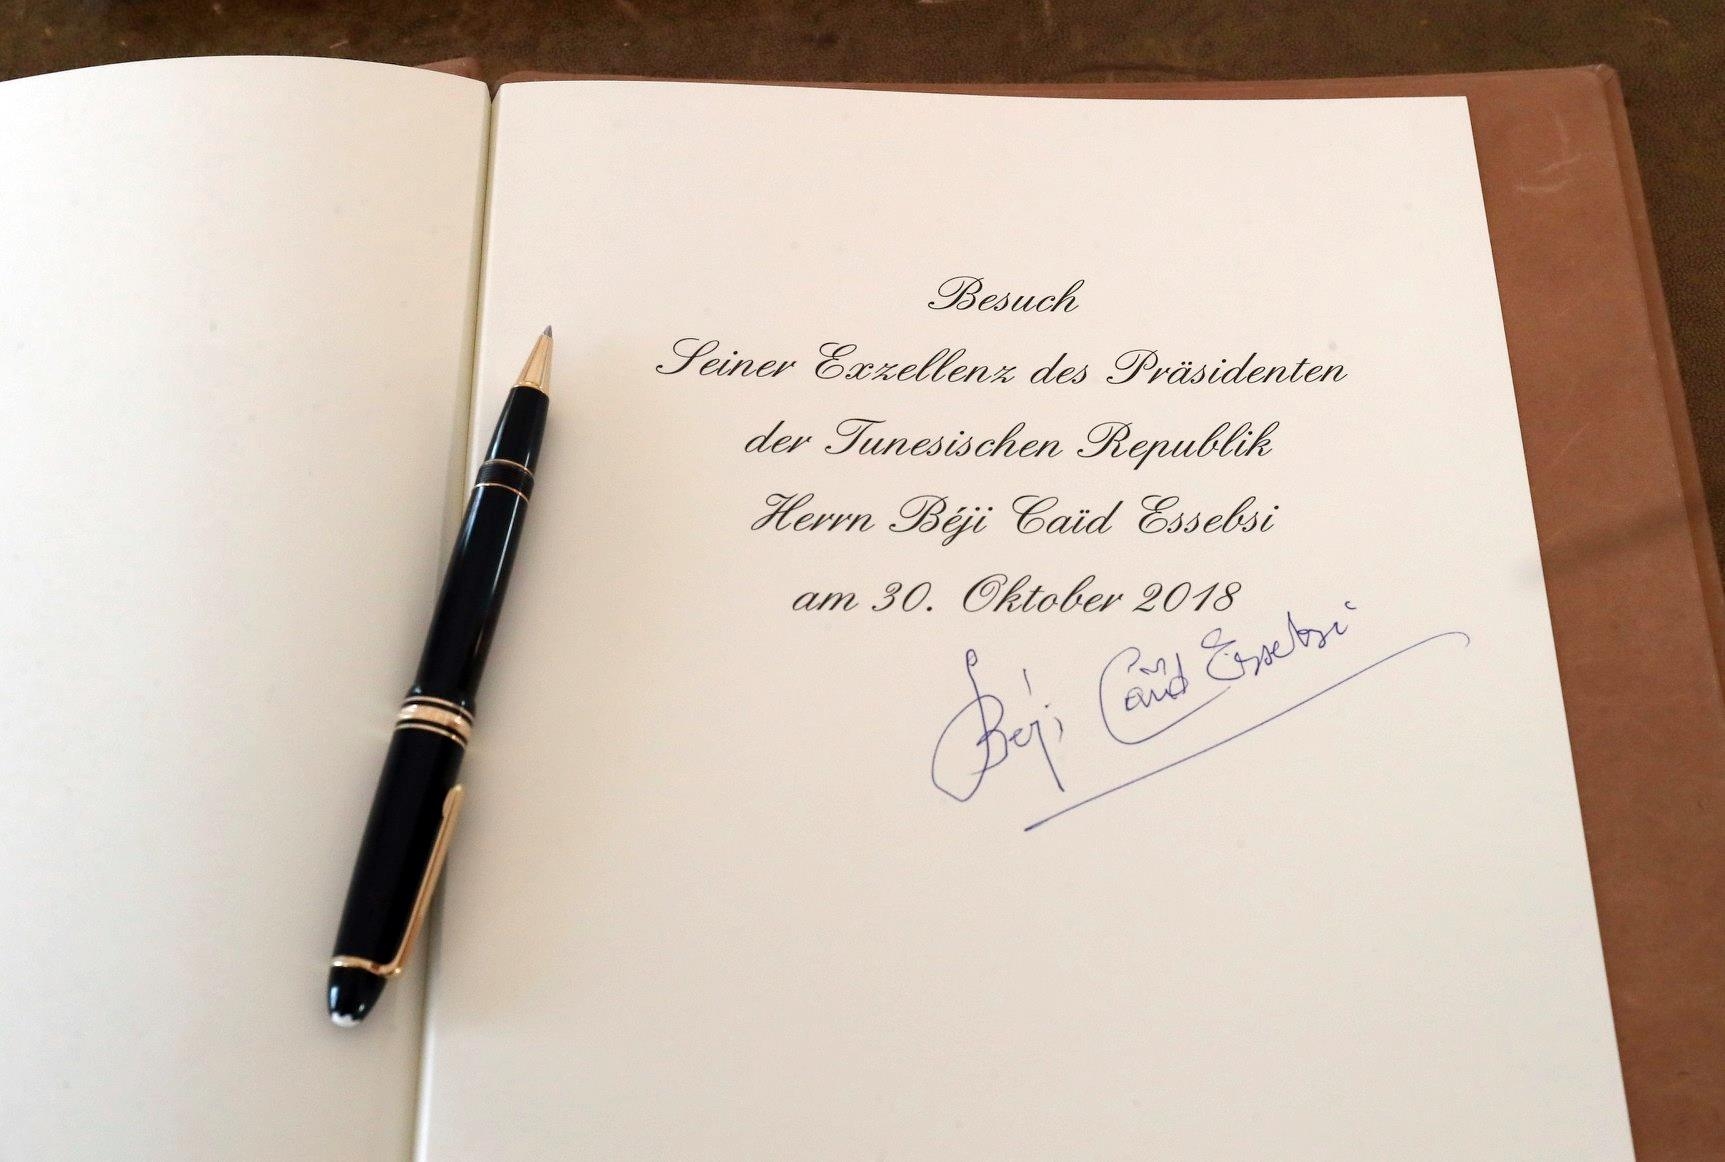 Besuch
Seiner Exzellenz des Präsidenten
der Tunesischen Republik
Herrn Béji Caïd Essebsi
am 30. Oktober 2018
Béji Caïd Essebsi